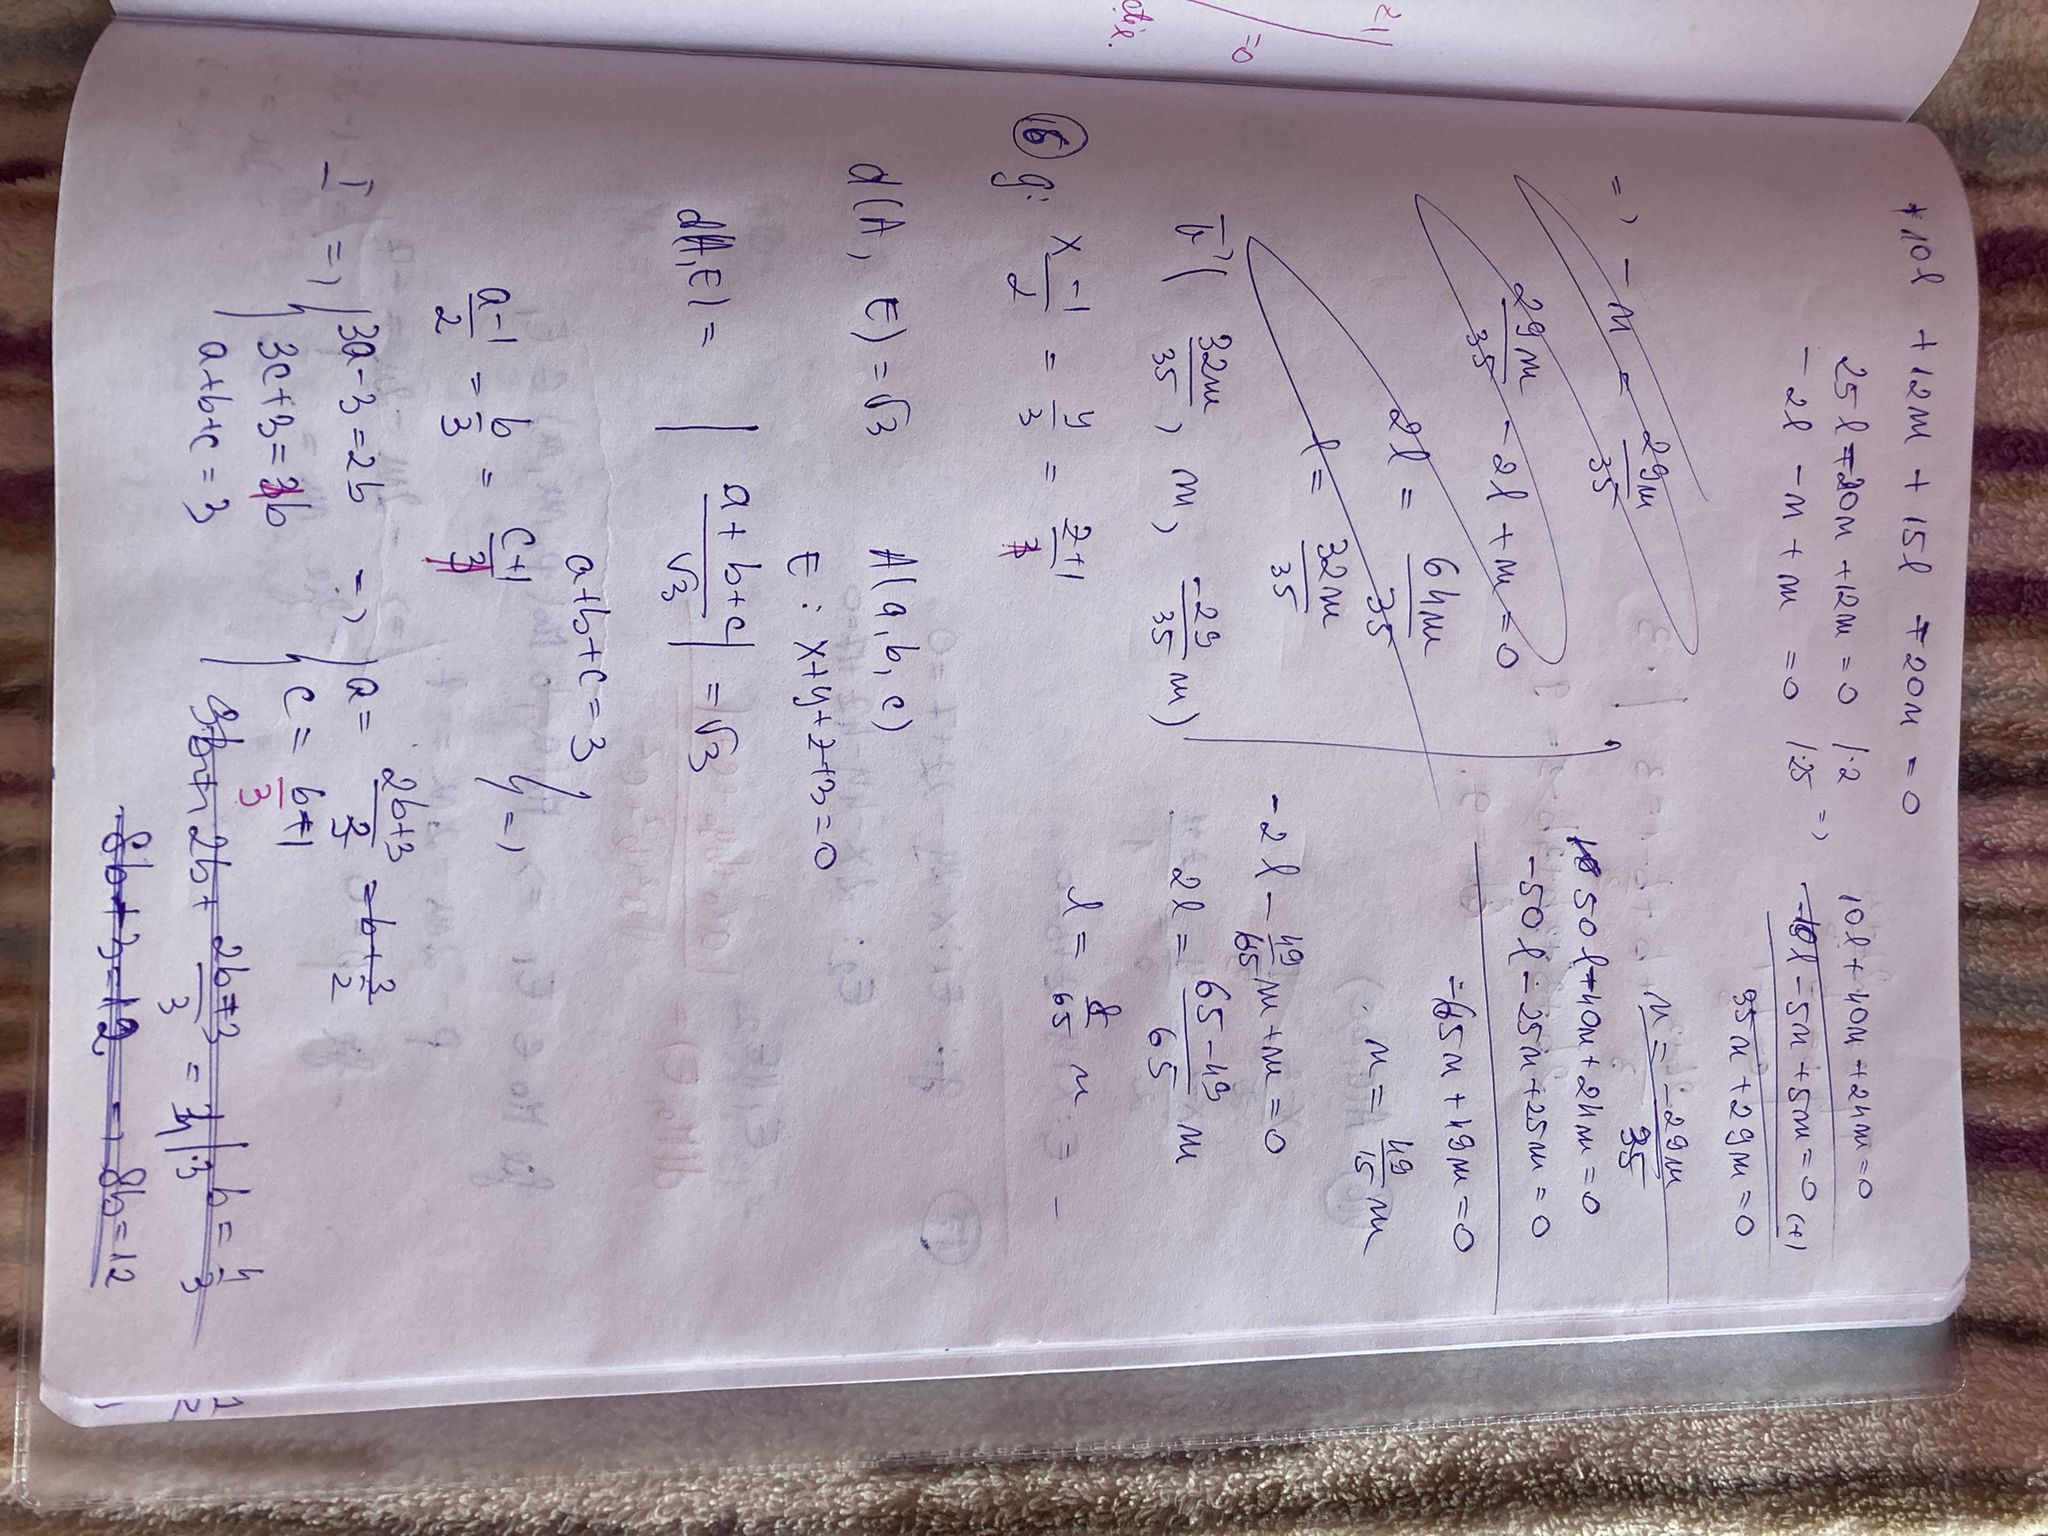 +10l + 12m + 15l - 20n = 0
25l - 20n + 12m = 0 /·2
-2l - n + m = 0 /·25 =>
10l + 40n + 24m = 0
-10l - 5n + 5m = 0 (+)
35n + 29m = 0
n = -29m/35
=> -n = 29m/35
29m/35 - 2l + m = 0
2l = 64m/35
l = 32m/35
v(32m/35, m, -29/35 m)
50l - 40n + 24m = 0
-50l - 25n + 25m = 0
-65n + 49m = 0
n = 49/15 m
-2l - 49/65 m + m = 0
2l = (65-49)/65 m
l = 8/65 m
16 g: (x-1)/2 = y/3 = (z+1)/1
d(A, E) = √3 A(a, b, c)
E: x+y+z+3=0
d(A,E) = |(a+b+c)/√3| = √3
a+b+c = 3
(a-1)/2 = b/3 = (c+1)/1 =>
I => 3a-3 = 2b => a = (2b+3)/3 = b + 3/2
3c+3 = b c = b/3 - 1
a+b+c = 3
2b+ (2b+3)/3 = |·3 b = 4/3
8b+3=12 => 8b=12
z1
=0
1/2